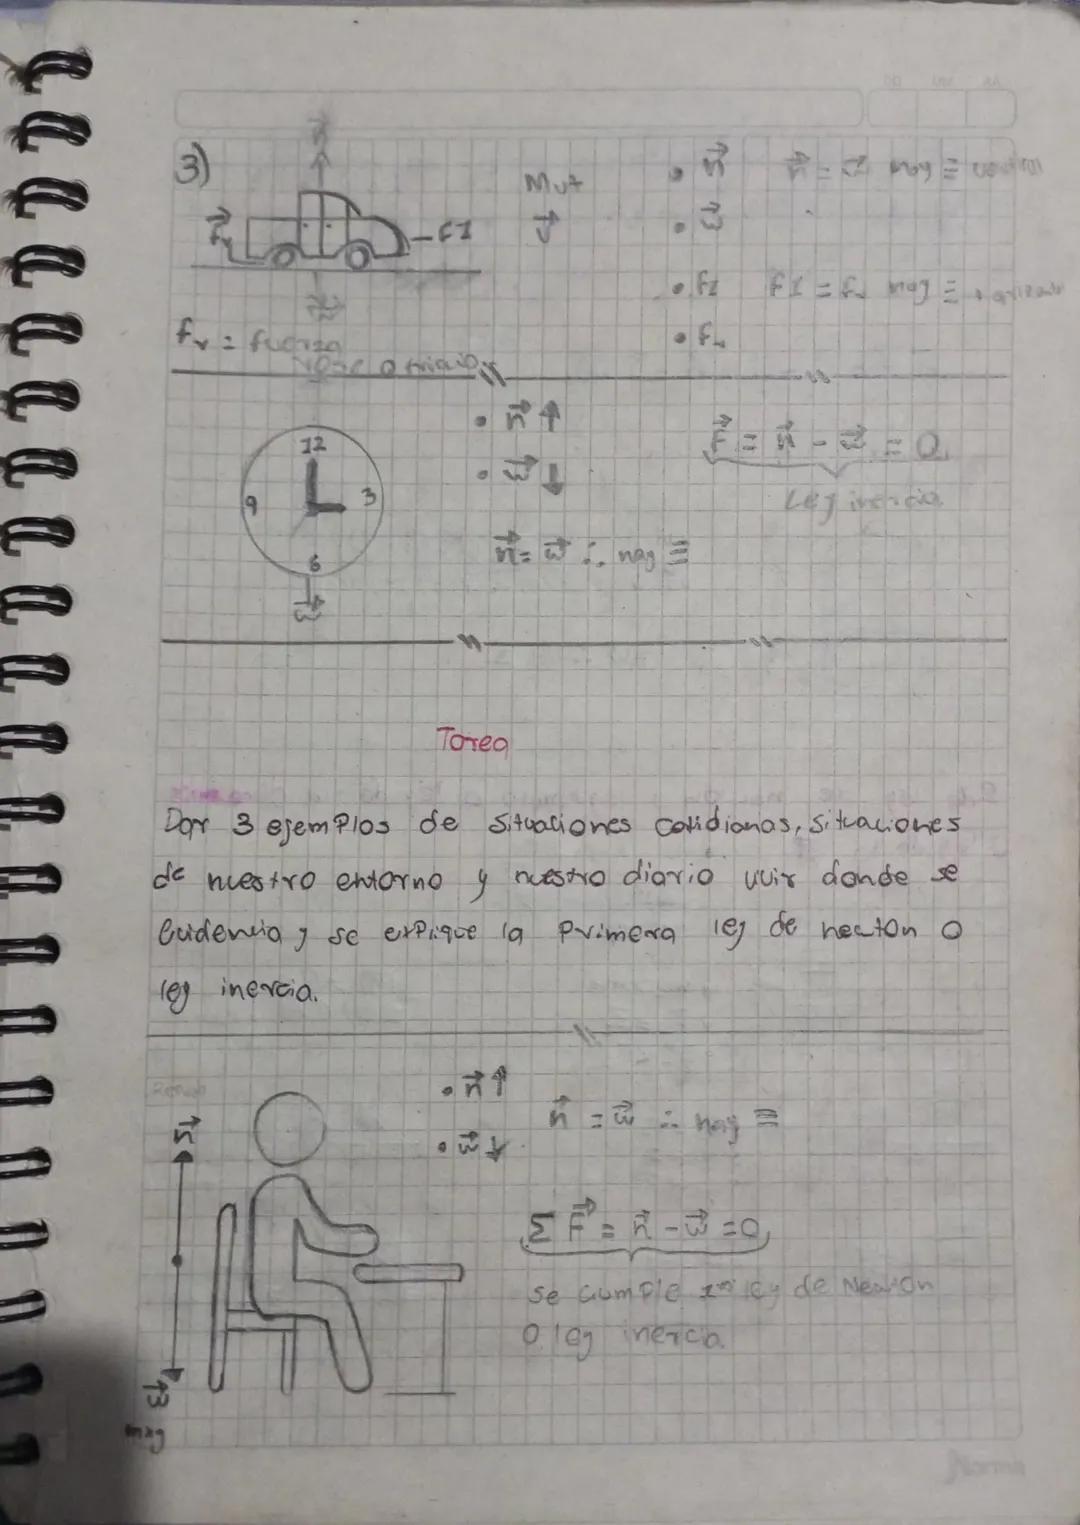 DD MM AA
3)
n
Mut
v
Fr
f1
w
• n
n = w mag ≡
• w
• f1
f1 = fr mag ≡
• fr
fr = fuerza
12
9
3
6
w
• n ↑
• w ↓
n = w ∴ mag ≡
F = n - w = 0
Ley inercia
Tarea
Dar 3 ejemplos de situaciones cotidianas, situaciones
de nuestro entorno y nuestro diario vivir donde se
Evidencia y se explique la primera ley de newton o
ley inercia.
n
w
• n ↑
• w ↓
n = w ∴ mag ≡
Σ F = n - w = 0
se cumple 1ra ley de Newton
o ley inercia
Norma